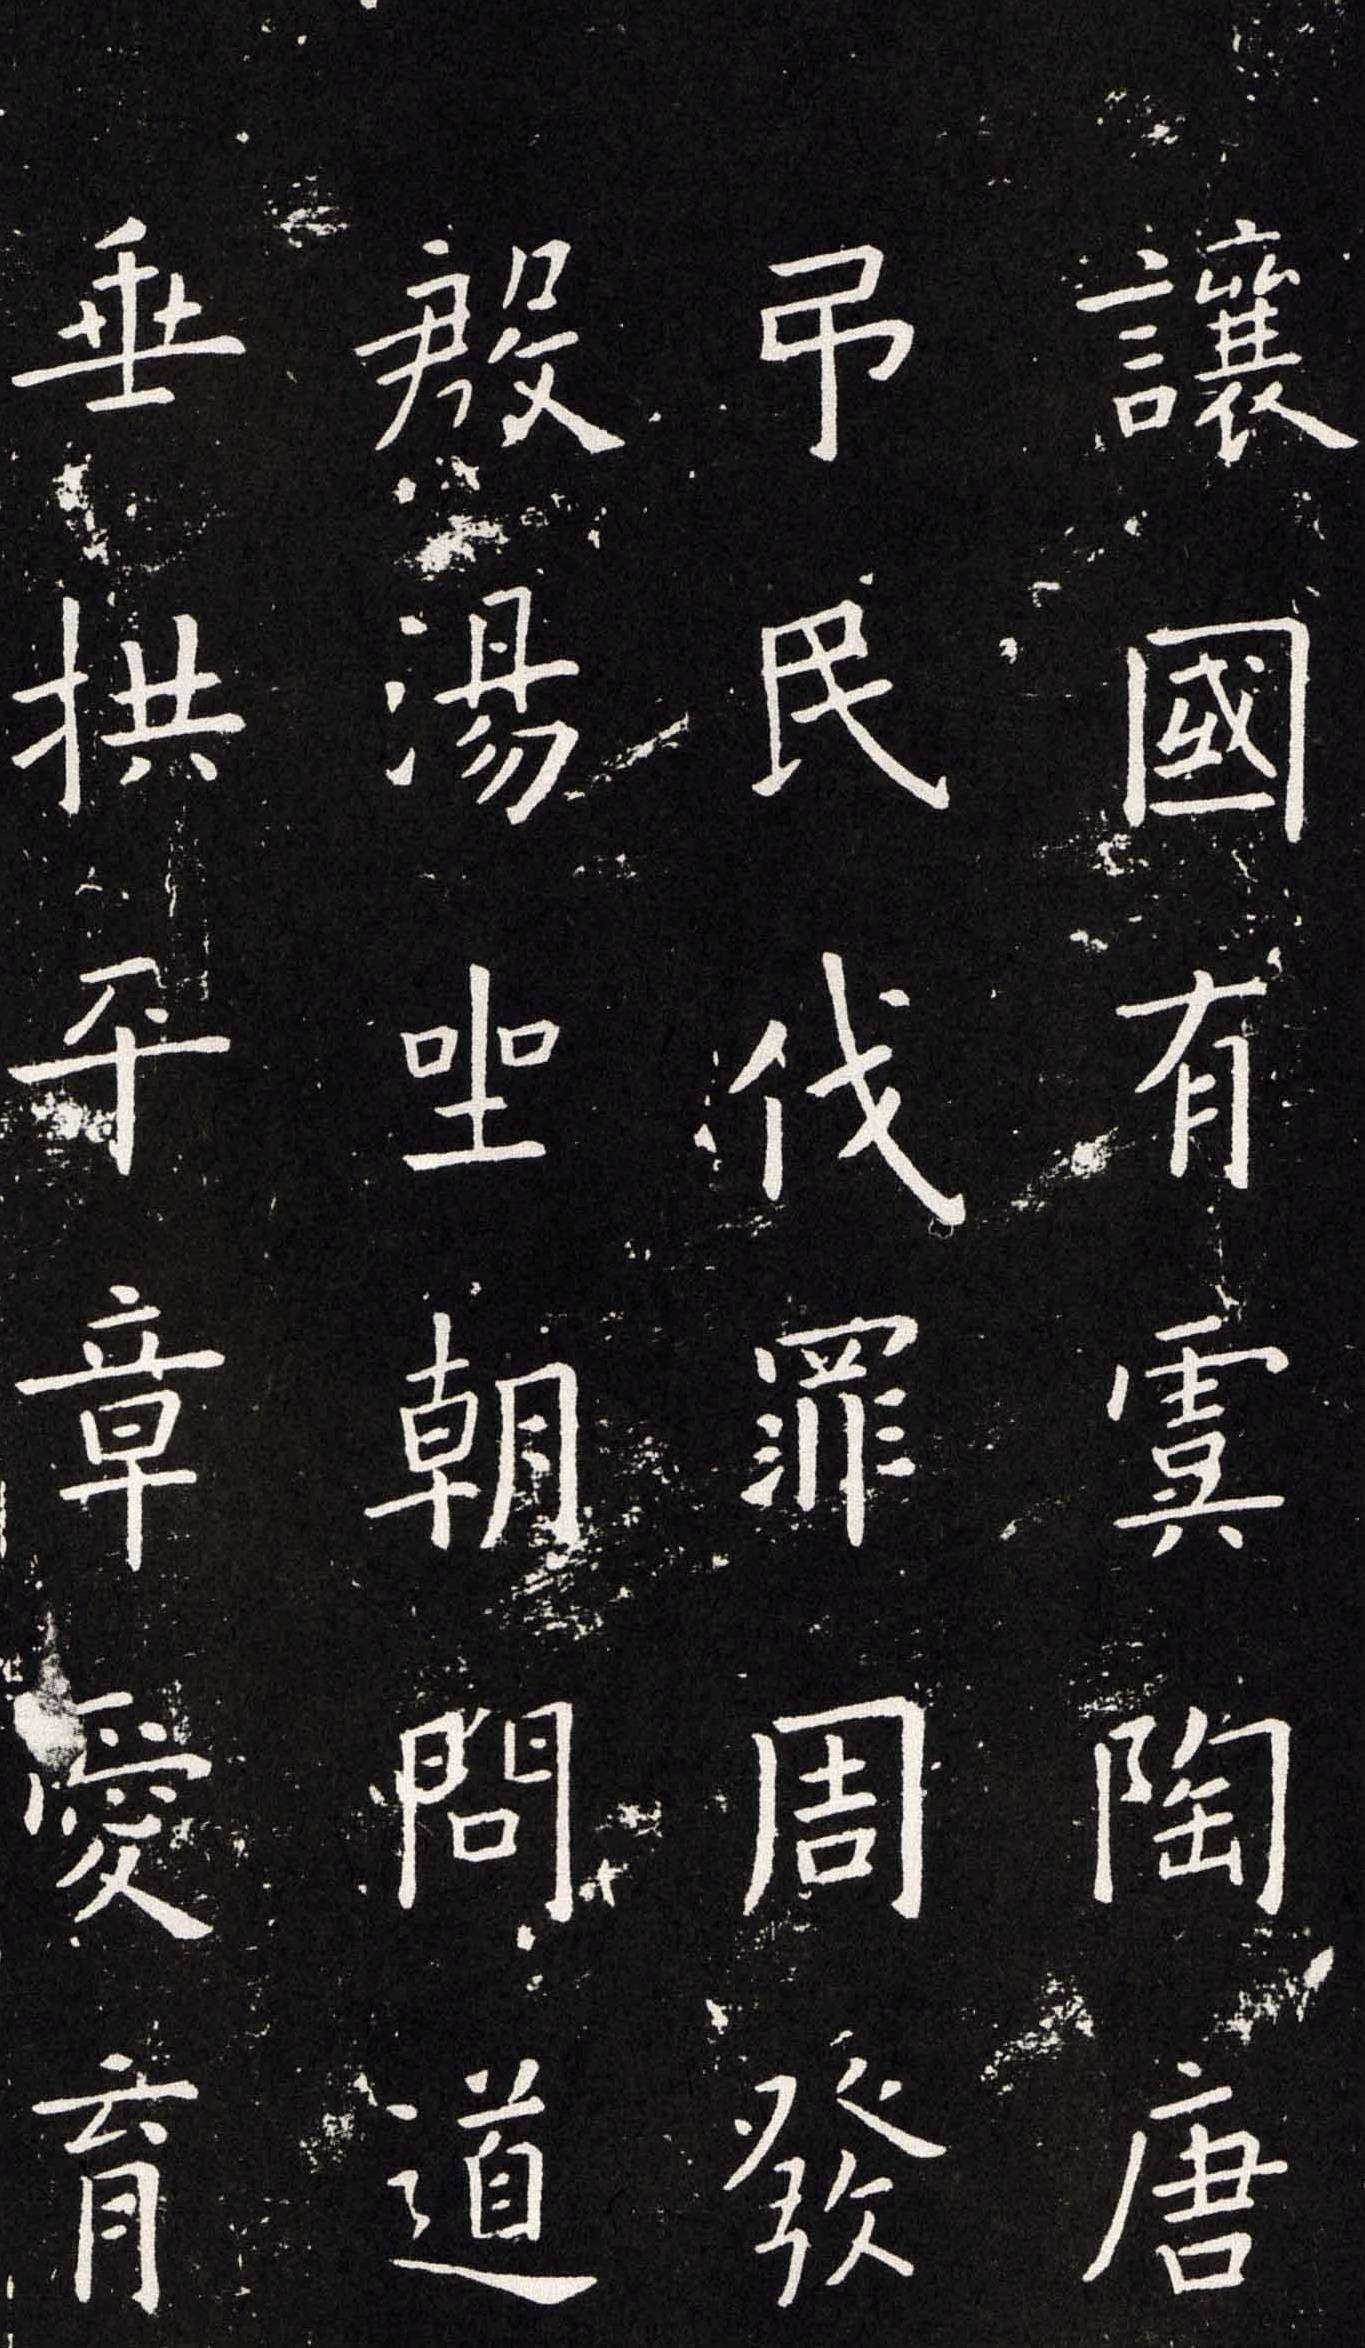 讓國有虞陶唐
弔民伐罪周發
殷湯坐朝問道
垂拱平章愛育